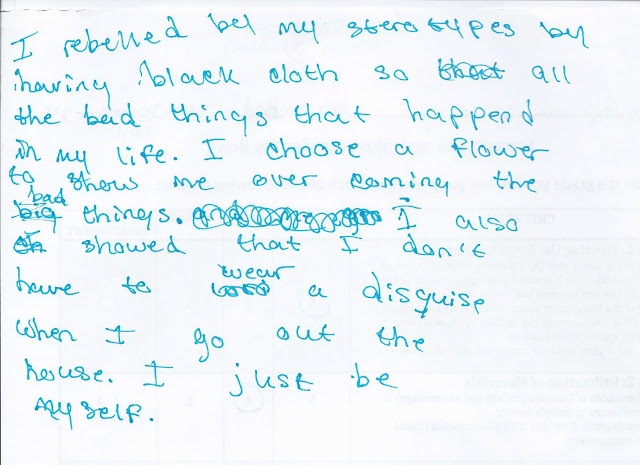 I rebelled by my sterotypes by
having black cloth so all
the bad things that happend
in my life. I choose a flower
to show me over coming the
bad things. I also
showed that I don't
have to wear a disguise
when I go out the
house. I just be
myself.